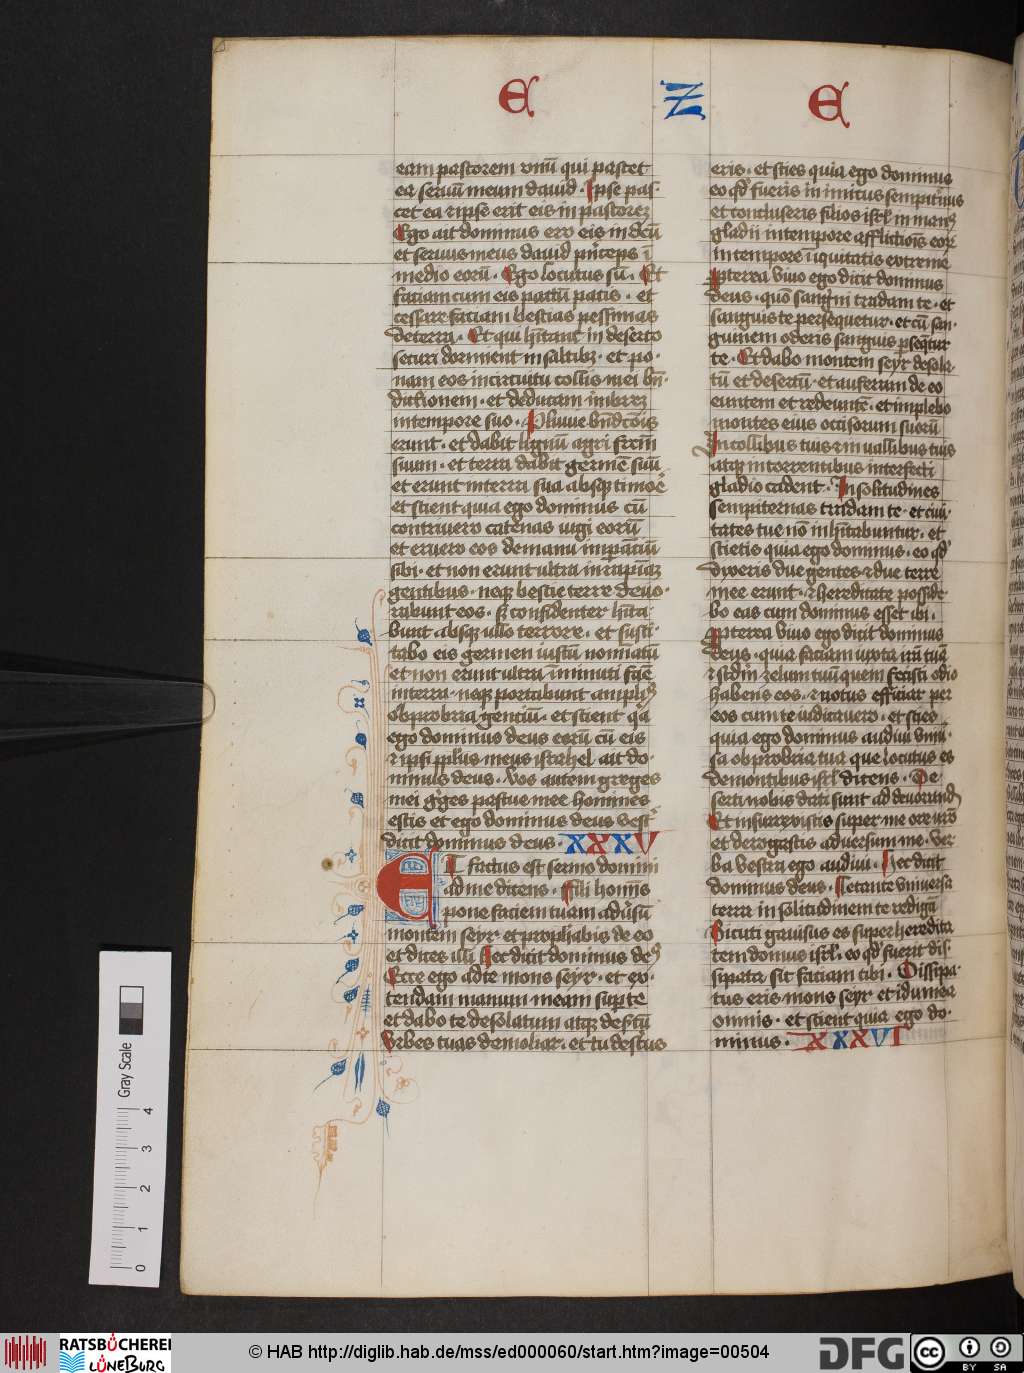 E Z E
eam pastorem vnū qui pastet
ea seruū meum dauid. Ipse pas
cet ea ⁊ ipse erit eis in pastorez
Ego aūt dominus ero eis in deū
et seruus meus dauid prīceps ī
medio eorū. Ego locutus sū. Et
faciam cum eis pactū pacis. et
cessare faciam bestias pessimas
de terra. Et qui hītant in deserto
securi dormient in saltibꝫ. et po
nam eos in circuitu collis mei bn̄
dictionem. et deducam imbrez
in tempore suo. Pluuie bn̄dictōis
erunt. et dabit lignū agri fructū
suum. et terra dabit germē suū
et erunt in terra sua absqꝫ timoe
et scient quia ego dominus cū
contriuero catenas iugi eorū
et eruero eos de manu imperāciū
sibi. et non erunt ultra in rapinā
gentibus. neqꝫ bestie terre deuo
rabunt eos. sꝫ confidenter hīta
bunt absqꝫ ullo terrore. et susci
tabo eis germen iustū nominatū
et non erunt ultra īminuti fāe
in terra. neqꝫ portabunt amplius
obprobria genciū. et scient qa
ego dominus deus eorū cū eis
⁊ ipsi pplus meus israhel ait do
minus deus. vos autem greges
mei gͥges pascue mee homines
estis et ego dominus deus vestr
dicit dominus deus. XXXV
ET factus est sermo domini
ad me dicens. Fili homīs
pone faciem tuam aduersū
montem seyr et prophabis de eo
et dices illi Hec dicit dominus deus
Ecce ego ad te mons seyr. et ex
tendam manum meam sup te
et dabo te desolatum atqꝫ desertū
Vrbes tuas demoliar. et tu desertus
eris. et scies quia ego dominus
eo qd fueris inimicus sempiternus
et concluseris filios isrl in manꝰ
gladii in tempore afflictiois eoꝝ
in tempore iniquitatis extreme
Ppterea viuo ego dicit dominus
deus. quō sanguini tradam te. et
sanguis te persequetur. et cū san
guinem oderis sanguis psequetur
te. Et dabo montem seyr desola
tū et desertū. et auferam de eo
euntem et redeuntē. et implebo
montes eius occisorum suorū
In collibus tuis ⁊ in uallibus tuis
atqꝫ in torrentibus interfecti
gladio cadent. In solitudines
sempiternas tradam te. et ciui
tates tue nō inhītabuntur. et
scietis quia ego dominus. eo qd
dixeris due gentes ⁊ due terre
mee erunt. ⁊ hereditate posside
bo eas cum dominus esset ibi.
Ppterea viuo ego dicit dominus
deus. quia faciam iuxta irā tuā
⁊ scdm zelum tuū quem fecisti odio
habens eos. ⁊ notus efficiar per
eos cum te iudicauero. et scies
quia ego dominus audiui vniū
sa obprobria tua que locutus es
de montibus isrl dicens. De
serti nobis dati sunt ad deuorand
Et insurrexistis super me ore uro
et derogastis aduersum me. ver
ba vestra ego audiui. Hec dicit
dominus deus. Letante vniuersa
terra in solitudinem te redigā
Sicuti gauisus es super heredita
tem domus isrl. eo qd fuerit dis
sipata sic faciam tibi. Dissipa
tus eris mons seyr et idumea
omnis. et scient quia ego do
minus. XXXVI
Gray Scale
0 1 2 3 4
RATSBÜCHEREI
LÜNEBURG
© HAB http://diglib.hab.de/mss/ed000060/start.htm?image=00504
DFG
cc BY SA